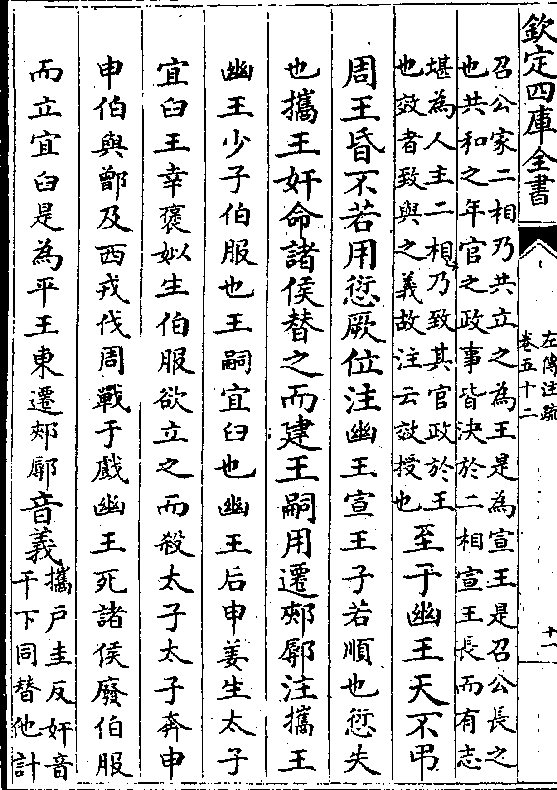 欽定四庫全書
左傳注疏
卷五十二
十一
召公家二相乃共立之為王是為宣王是召公長之
也共和之年官之政事皆決於二相宣王長而有志
堪為人主二相乃致其官政於王
也效者致與之義故注云效授也
至于幽王天不弔
周王昏不若用愆厥位注幽王宣王子若順也愆失
也攜王奸命諸侯替之而建王嗣用遷郟鄏注攜王
幽王少子伯服也王嗣宜臼也幽王后申姜生太子
宜臼王幸褒姒生伯服欲立之而殺太子太子奔申
申伯與鄫及西戎伐周戰于戲幽王死諸侯廢伯服
而立宜臼是為平王東遷郟鄏音義
攜戶圭反奸音
干下同替他計